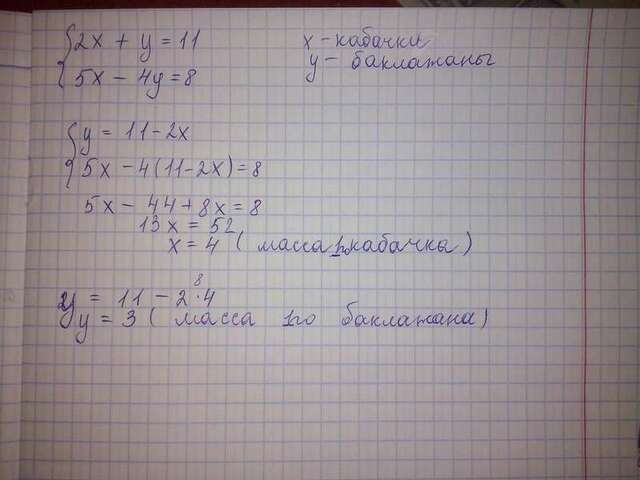 2x + y = 11
5x - 4y = 8
x - кабачки
y - баклажаны
y = 11 - 2x
5x - 4(11-2x) = 8
5x - 44 + 8x = 8
13x = 52
x = 4 ( масса 1го кабачка )
8
y = 11 - 2·4
y = 3 ( масса 1го баклажана )